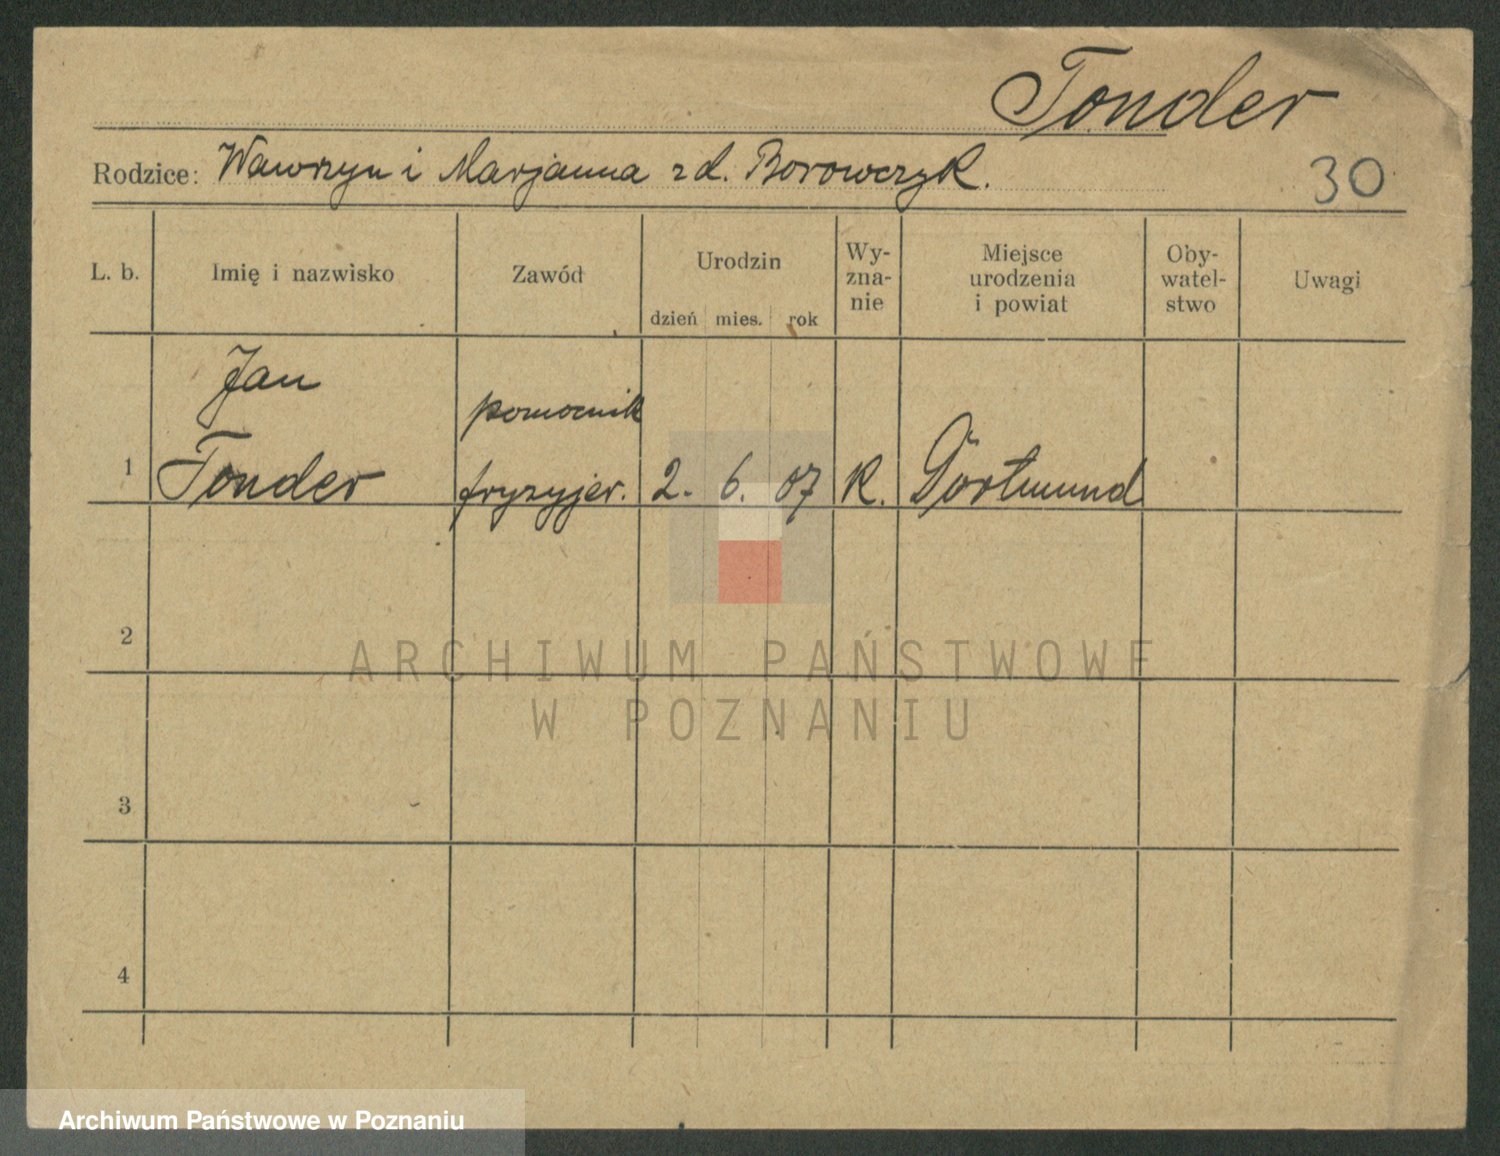 Tonder
Rodzice: Wawrzyn i Marjanna z d. Borowczyk.
30
L. b.
Imię i nazwisko
Zawód
Urodzin
dzień mies. rok
Wy-
zna-
nie
Miejsce
urodzenia
i powiat
Oby-
watel-
stwo
Uwagi
1
Jan
Tonder
pomocnik
fryzyjer.
2. 6. 07
K.
Dortmund
2
3
4
ARCHIWUM PAŃSTWOWE
W POZNANIU
Archiwum Państwowe w Poznaniu